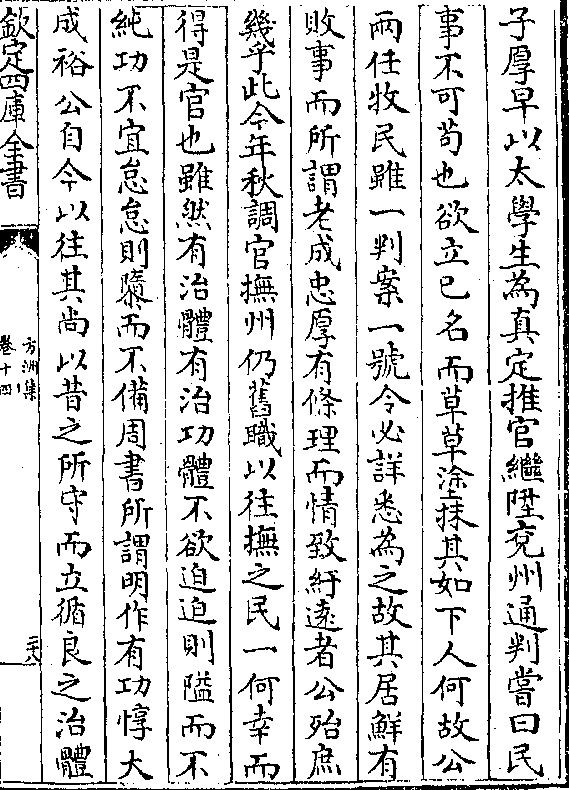 子厚早以太學生為真定推官繼陞兖州通判嘗曰民
事不可苟也欲立已名而草草塗抹其如下人何故公
兩任牧民雖一判案一號令必詳悉為之故其居鮮有
敗事而所謂老成忠厚有條理而情致紆遠者公殆庶
幾乎此今年秋調官撫州仍舊職以往撫之民一何幸而
得是官也雖然有治體有治功體不欲迫迫則隘而不
純功不宜怠怠則隳而不備周書所謂明作有功惇大
成裕公自今以往其尚以昔之所守而立循良之治體
欽定四庫全書
方洲集
卷十四
二十八